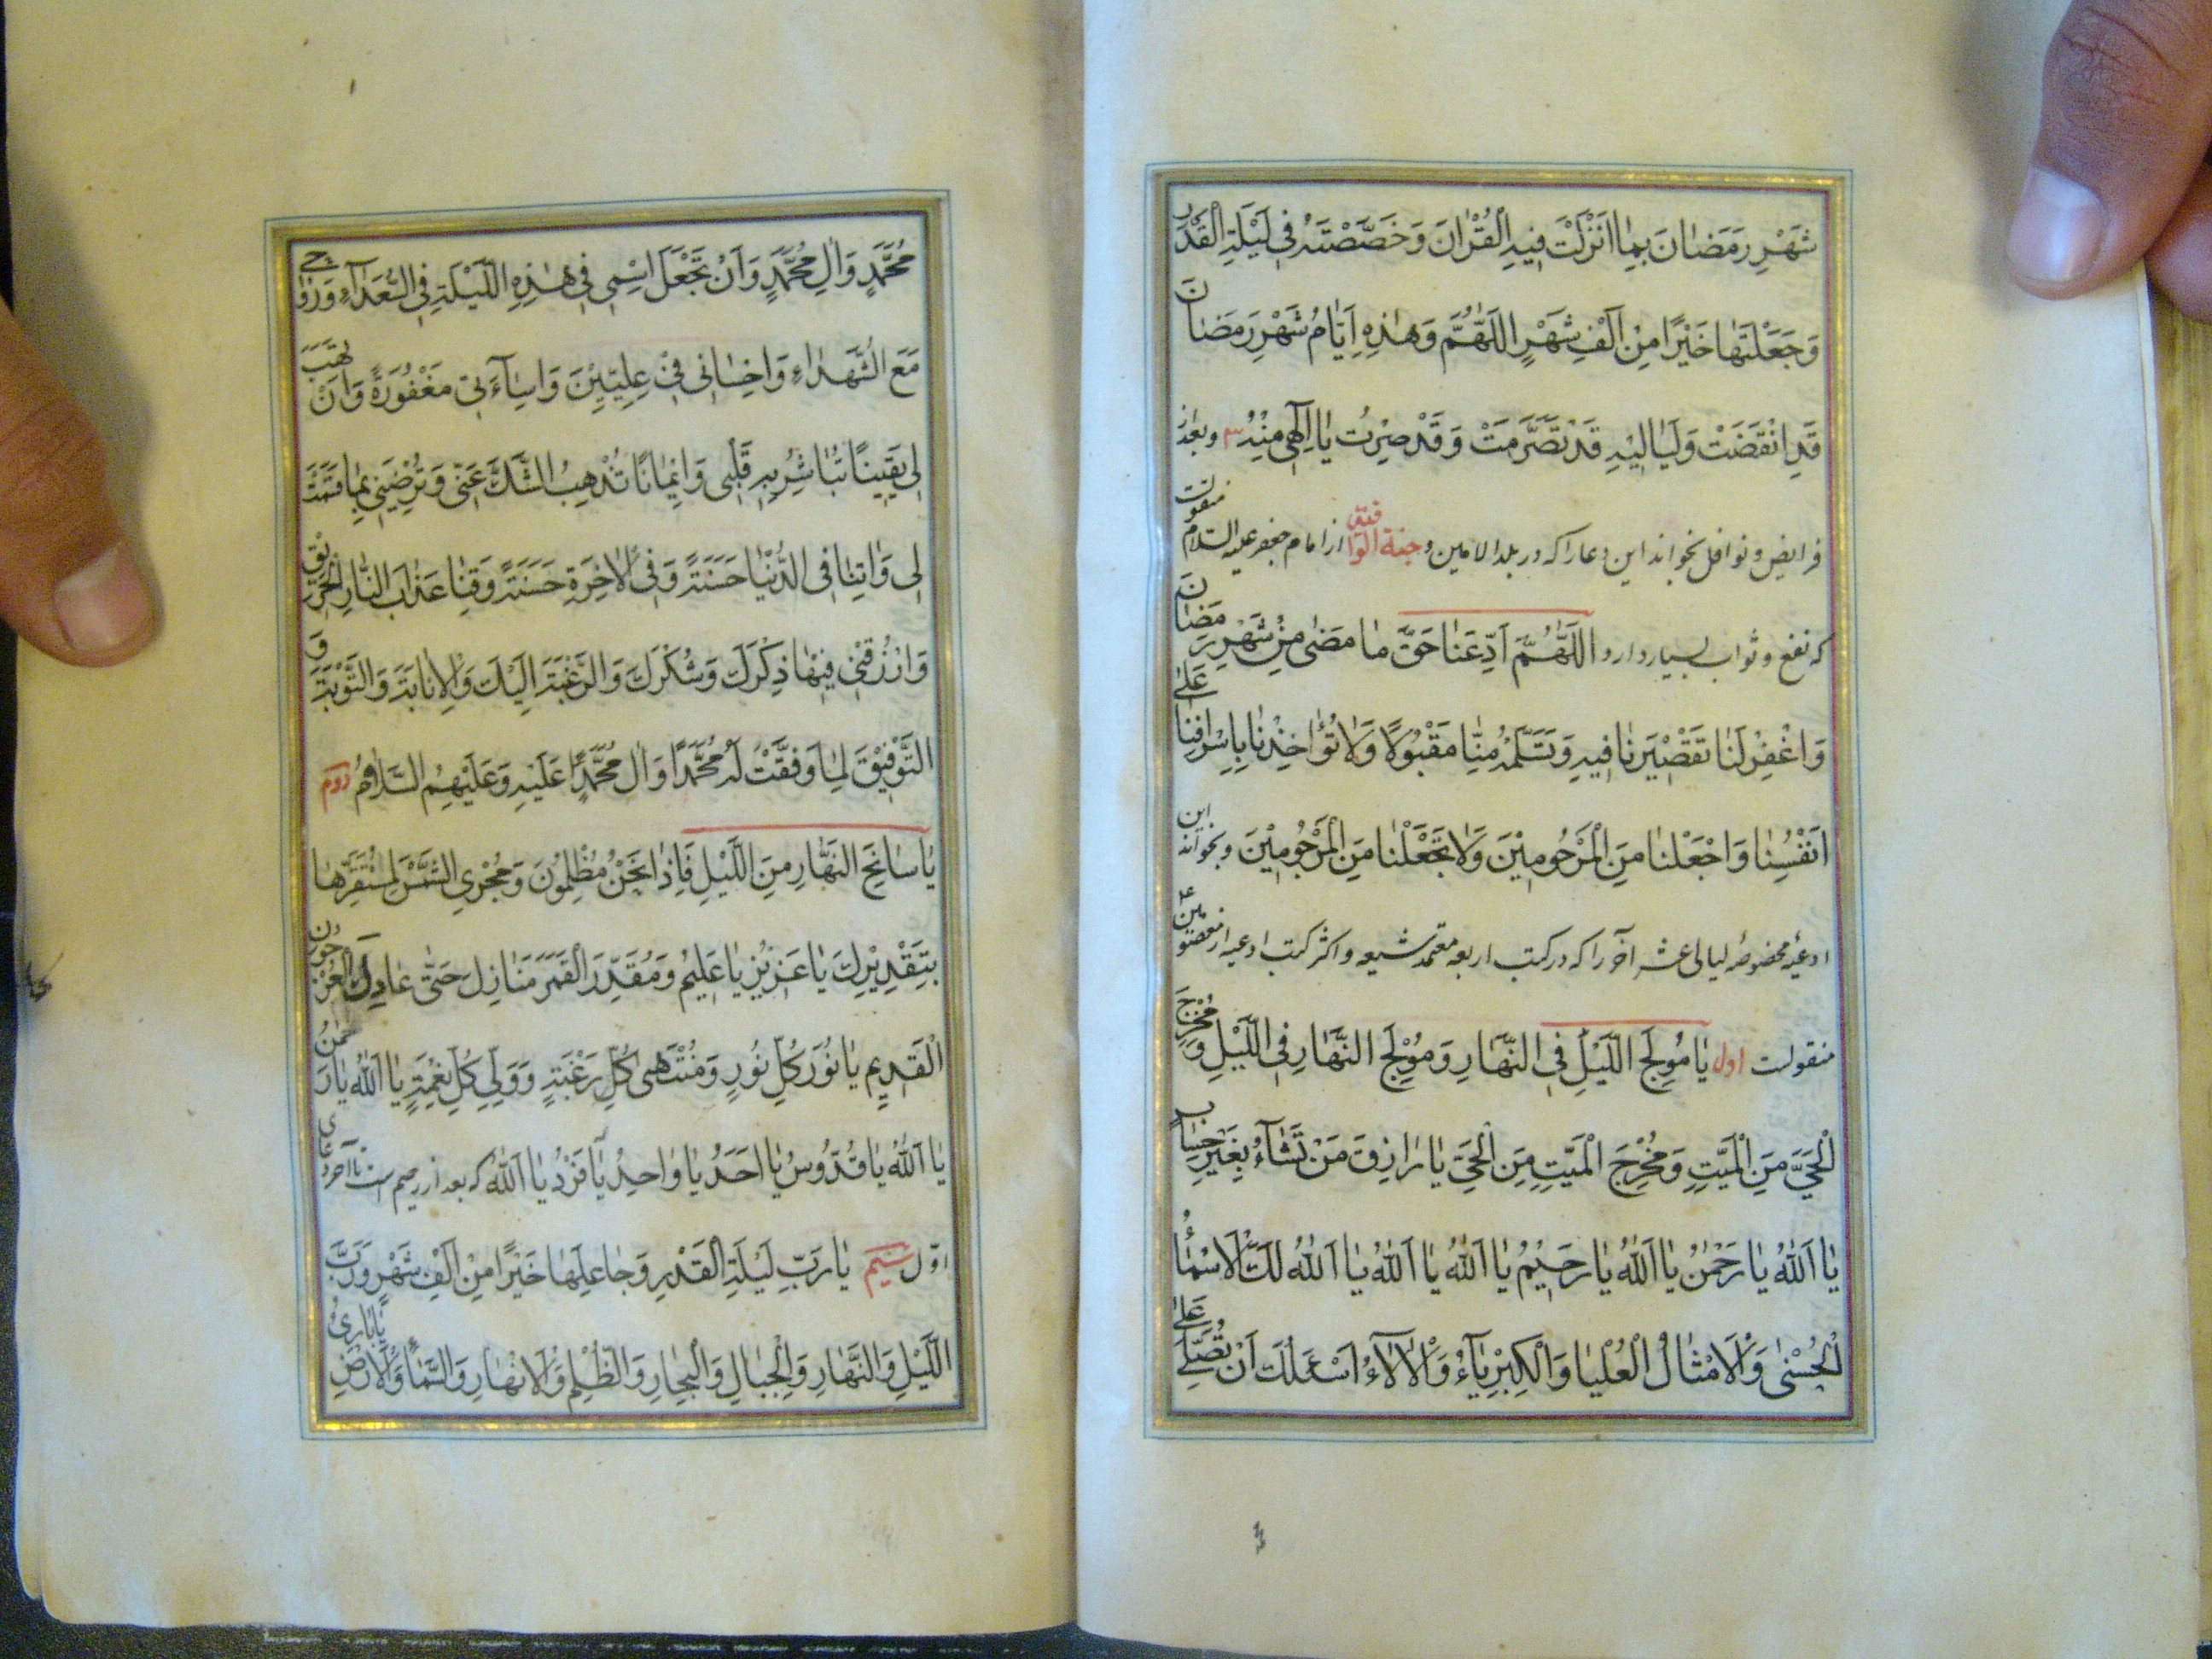 شَهْرِ رَمَضٰانَ بِمٰا اَنْزَلْتَ فِيهِ الْقُرْاٰنَ وَخَصَّصْتَهُ فِى لَيْلَةِ الْقَدْرِ
وَجَعَلْتَهٰا خَيْرًا مِنْ اَلْفِ شَهْرٍ اَللّٰهُمَّ وَهٰذِهِ اَيّٰامُ شَهْرِ رَمَضٰانَ
قَدِ انْقَضَتْ وَلَيٰالِيْهِ قَدْ تَصَرَّمَتْ وَقَدْ صِرْتُ يٰا اِلٰهِى مِنْهُ وبعد از
فرايض و نوافل بخواند اين دعا را كه در بلد الامين و جنة الواقيه از امام جعفر عليه السلام منقولست
كه نفع و ثواب بسيار دارد اَللّٰهُمَّ اَدِّ عَنّٰا حَقَّ مٰا مَضٰى مِنْ شَهْرِ رَمَضٰانَ
وَاغْفِرْ لَنٰا تَقْصِيْرَنٰا فِيهِ وَتَسَلَّمْهُ مِنّٰا مَقْبُولًا وَلٰا تُؤٰاخِذْنٰا بِاِسْرٰافِنٰا عَلٰى
اَنْفُسِنٰا وَاجْعَلْنٰا مِنَ الْمَرْحُومِيْنَ وَلٰا تَجْعَلْنٰا مِنَ الْمَرْجُومِيْنَ و بخواند اين
ادعيۀ مخصوصۀ ليالى عشر آخر را كه در كتب اربعه معتمد شيعه و اكثر كتب ادعيه از معصومين ع
منقولست اول يٰا مُولِجَ اللَّيْلِ فِى النَّهٰارِ وَمُوْلِجَ النَّهٰارِ فِى اللَّيْلِ وَمُخْرِجَ
الْحَيِّ مِنَ الْمَيِّتِ وَمُخْرِجَ الْمَيِّتِ مِنَ الْحَيِّ يٰا رٰازِقَ مَنْ تَشٰآءُ بِغَيْرِ حِسٰابٍ
يٰا اَللّٰهُ يٰا رَحْمٰنُ يٰا اَللّٰهُ يٰا رَحِيْمُ يٰا اَللّٰهُ يٰا اَللّٰهُ يٰا اَللّٰهُ لَكَ الْاَسْمٰآءُ
الْحُسْنٰى وَالْاَمْثٰالُ الْعُلْيٰا وَالْكِبْرِيٰآءُ وَالْاٰلٰاءُ اَسْئَلُكَ اَنْ تُصَلِّىَ عَلٰى
مُحَمَّدٍ وَاٰلِ مُحَمَّدٍ وَاَنْ تَجْعَلَ اسْمِى فِى هٰذِهِ اللَّيْلَةِ فِى السُّعَدٰآءِ وَرُوحِى
مَعَ الشُّهَدٰاءِ وَاِحْسٰانِى فِىْ عِلِّيِّيْنَ وَاِسٰآءَتِى مَغْفُورَةً وَاَنْ تَهَبَ
لِى يَقِيْنًا تُبٰاشِرُ بِهِ قَلْبِى وَاِيْمٰانًا تُذْهِبُ الشَّكَّ عَنِّى وَتُرْضِيَنِى بِمٰا قَسَمْتَ
لِى وَاٰتِنٰا فِى الدُّنْيٰا حَسَنَةً وَفِى الْاٰخِرَةِ حَسَنَةً وَقِنٰا عَذٰابَ النّٰارِ الْحَرِيْقِ
وَارْزُقْنِى فِيْهٰا ذِكْرَكَ وَشُكْرَكَ وَالرَّغْبَةَ اِلَيْكَ وَالْاِنٰابَةَ وَالتَّوْبَةَ وَ
التَّوْفِيْقَ لِمٰا وَفَّقْتَ لَهُ مُحَمَّدًا وَاٰلَ مُحَمَّدٍ عَلَيْهِ وَعَلَيْهِمُ السَّلٰامُ دوم
يٰا سٰالِخَ النَّهٰارِ مِنَ اللَّيْلِ فَاِذٰا نَحْنُ مُظْلِمُوْنَ وَمُجْرِي الشَّمْسِ لِمُسْتَقَرِّهٰا
بِتَقْدِيْرِكَ يٰا عَزِيْزُ يٰا عَلِيْمُ وَمُقَدِّرَ الْقَمَرِ مَنٰازِلَ حَتّٰى عٰادَ كَالْعُرْجُونِ
الْقَدِيمِ يٰا نُورَ كُلِّ نُورٍ وَمُنْتَهٰى كُلِّ رَغْبَةٍ وَوَلِىَّ كُلِّ نِعْمَةٍ يٰا اَللّٰهُ يٰا رَحْمٰنُ
يٰا اَللّٰهُ يٰا قُدُّوسُ يٰا اَحَدُ يٰا وٰاحِدُ يٰا فَرْدُ يٰا اَللّٰهُ كه بعد از رحيم است تا آخر دعاى
اوّل سيم يٰا رَبَّ لَيْلَةِ الْقَدْرِ وَجٰاعِلَهٰا خَيْرًا مِنْ اَلْفِ شَهْرٍ وَرَبَّ
اللَّيْلِ وَالنَّهٰارِ وَالْجِبٰالِ وَالْبِحٰارِ وَالظُّلَمِ وَالْاَنْهٰارِ وَالسَّمٰآءِ وَالْاَرْضِ يٰا بٰارِئُ